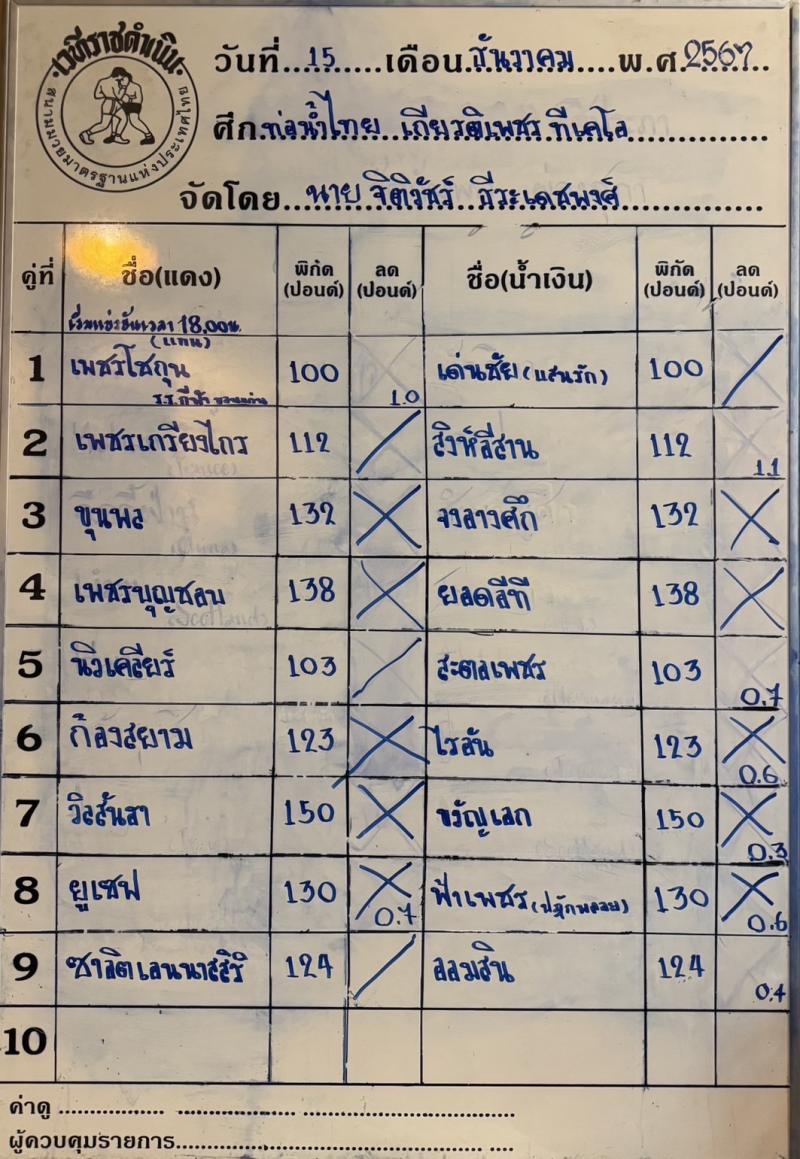 เวทีราชดำเนิน
สนามมวยมาตรฐานแห่งประเทศไทย
วันที่...15.....เดือน.ธันวาคม....พ.ศ.2567..
ศึก.ท่อน้ำไทย..เกียรติเพชร ทีเคโอ..............
จัดโดย...นาย จิติวัชร์ ธีระเดชพงศ์...............
คู่ที่ ชื่อ(แดง) พิกัด (ปอนด์) ลด (ปอนด์) ชื่อ(น้ำเงิน) พิกัด (ปอนด์) ลด (ปอนด์)
เริ่มแข่งขันเวลา 18.00น.
(แทน)
1 เพชรโชกุน 100 1.0 เด่นชัย (แสนรัก) 100
2 เพชรเกรียงไกร 112 สิงห์อีสาน 112 1.1
3 ขุนพล 132 จงอางศึก 132
4 เพชรบุญชอบ 138 ยอดอีที 138
5 นิวเคลียร์ 103 สะตอเพชร 103 0.7
6 ก้องสยาม 123 ไรอัน 123 0.6
7 วิลสันสา 150 ขวัญเอก 150 0.3
8 ยูเซฟ 130 0.7 ฟ้าเพชร 130 0.6
9 ชาลิตเลนนาสสิริ 124 ออมสิน 124 0.4
10
ค่าดู ................ .................. ................................
ผู้ควบคุมรายการ.............................................. ....